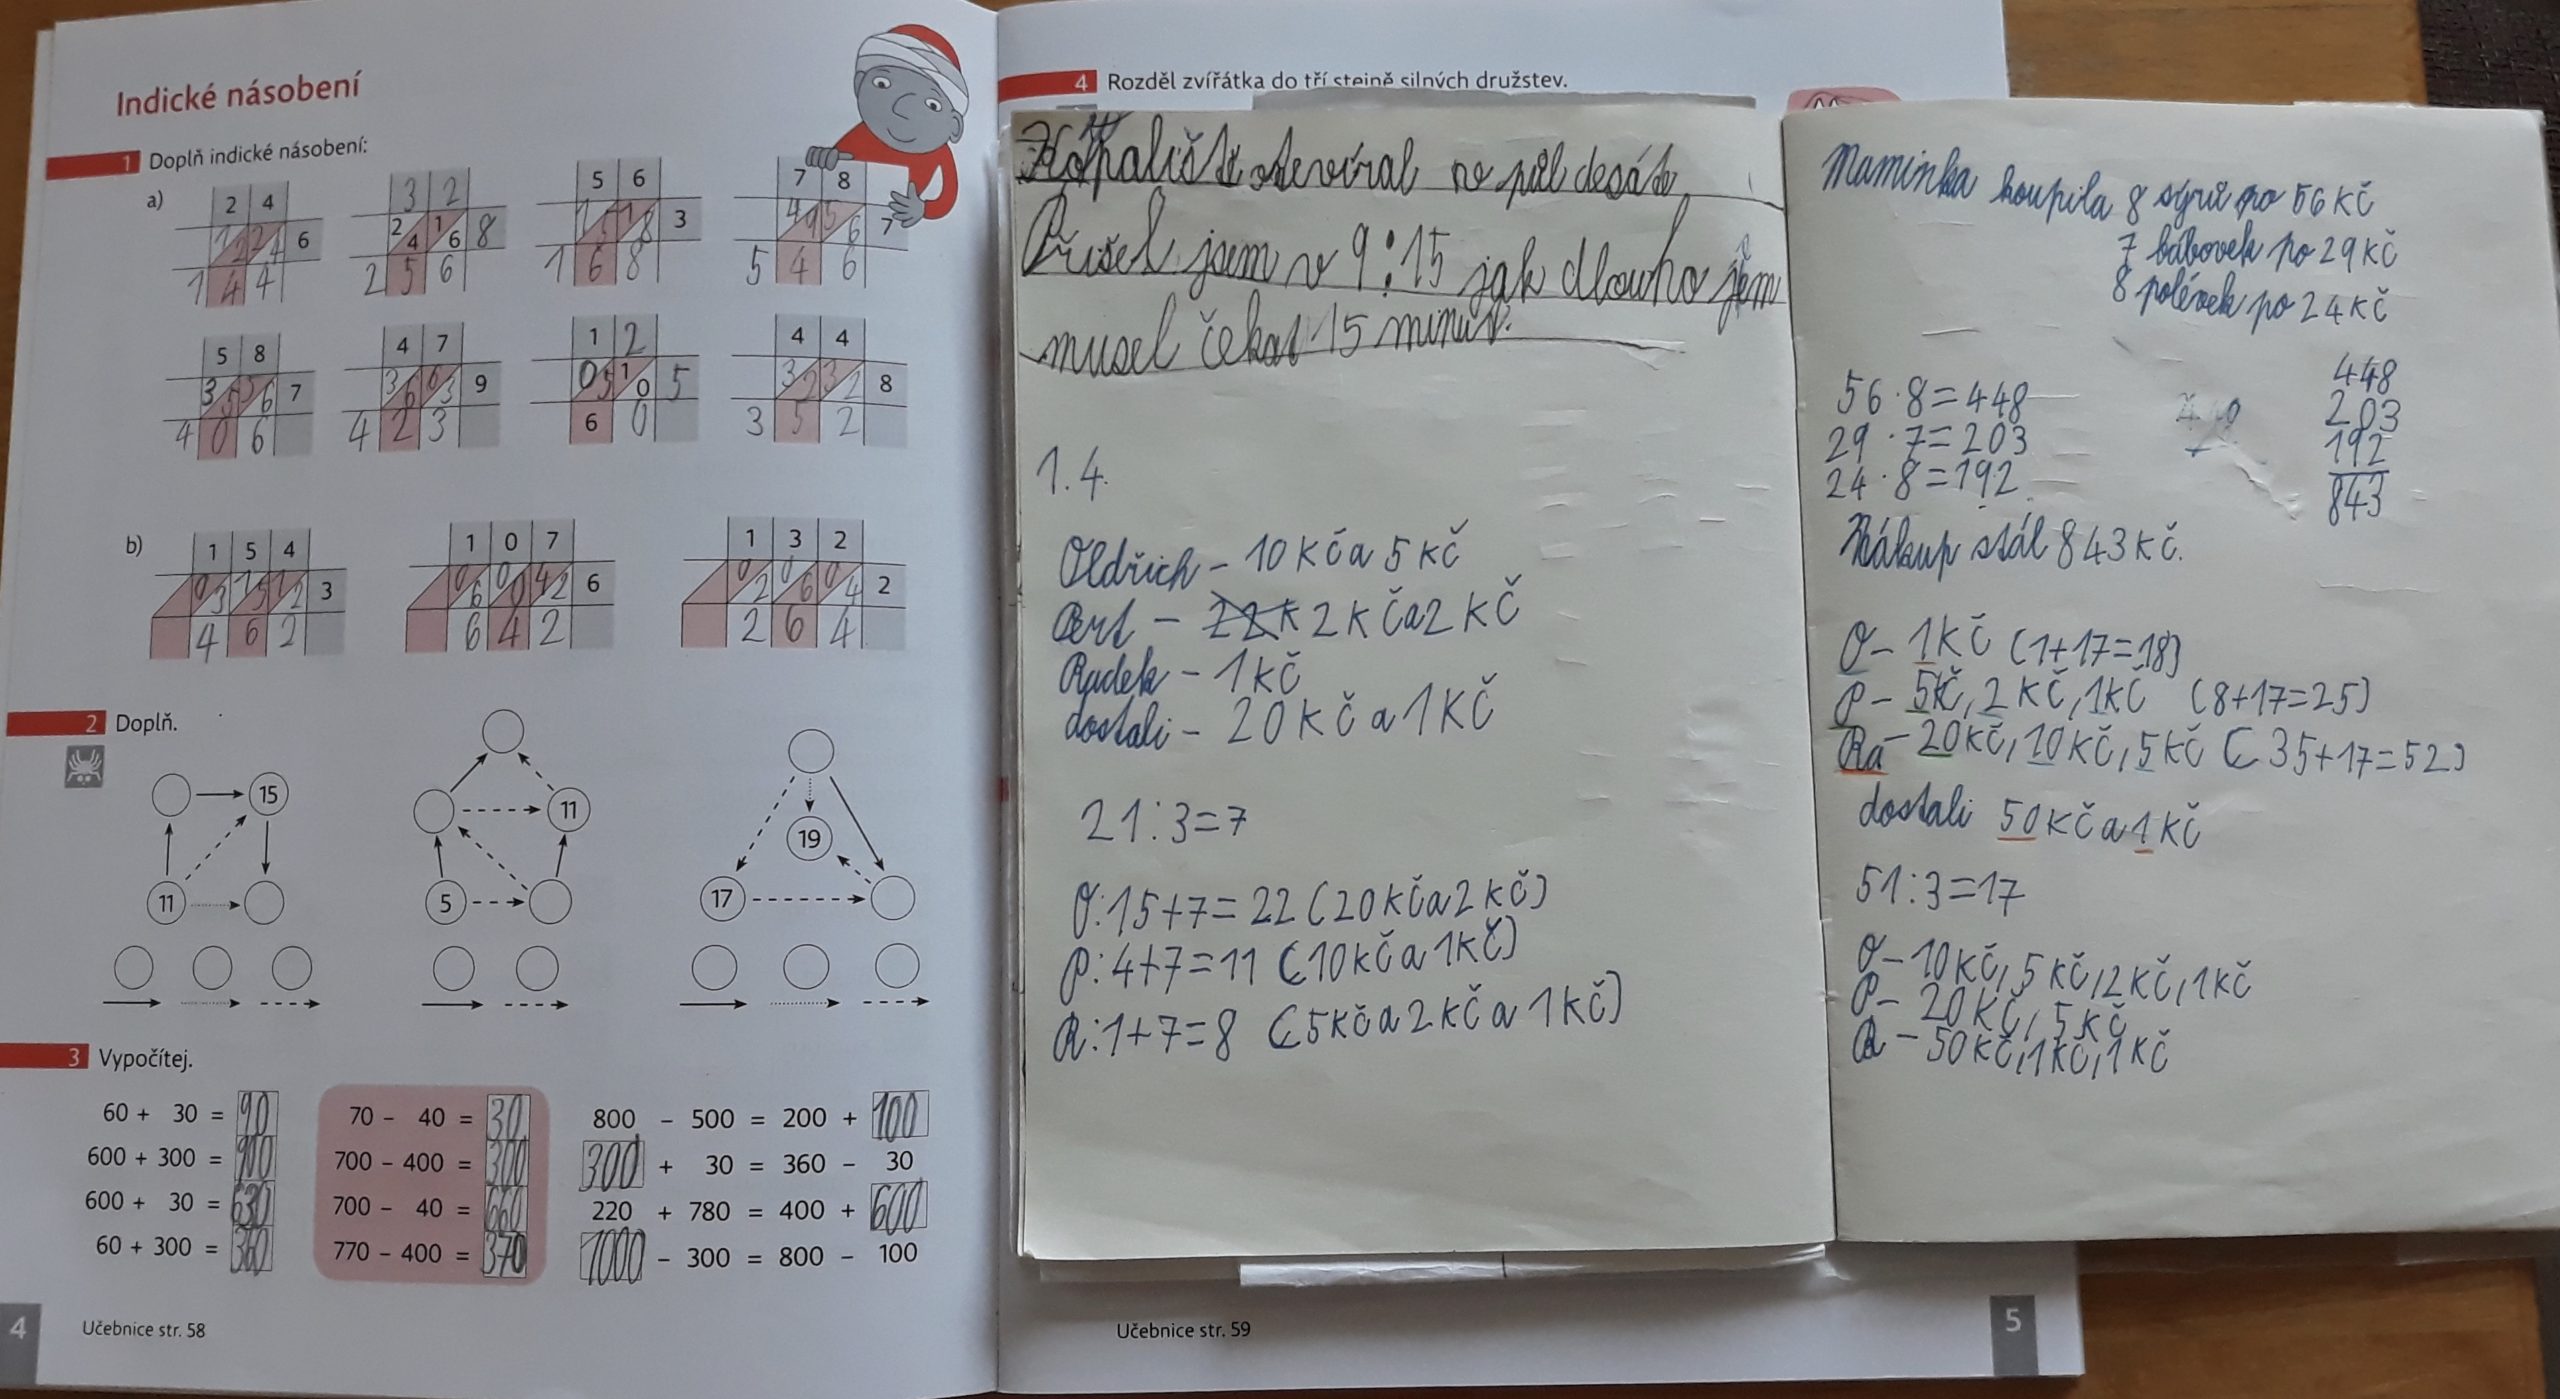 Indické násobení
1 Doplň indické násobení:
a)
2 4
1 2 2 4 6
1 4 4
3 2
2 4 1 6 8
2 5 6
5 6
1 5 1 8 3
1 6 8
7 8
4 9 5 6 7
5 4 6
5 8
3 5 5 6 7
4 0 6
4 7
3 6 6 3 9
4 2 3
1 2
0 5 1 0 5
6 0
4 4
3 2 3 2 8
3 5 2
b)
1 5 4
0 3 1 5 1 2 3
4 6 2
1 0 7
0 6 0 0 4 2 6
6 4 2
1 3 2
0 2 0 6 0 4 2
2 6 4
2 Doplň.
15
11
11
5
19
17
3 Vypočítej.
60 + 30 = 90
600 + 300 = 900
600 + 30 = 630
60 + 300 = 360
70 - 40 = 30
700 - 400 = 300
700 - 40 = 660
770 - 400 = 370
800 - 500 = 200 + 100
300 + 30 = 360 - 30
220 + 780 = 400 + 600
1000 - 300 = 800 - 100
4
Učebnice str. 58
4 Rozděl zvířátka do tří stejně silných družstev.
otevíral v půl desáte
Přišel jsem v 9:15 jak dlouho jsem
musel čekat 15 minut.
1.4.
Oldřich - 10 Kč a 5 Kč
- 2 Kč a 2 Kč
Radek - 1 Kč
dostali - 20 Kč a 1 Kč
21:3=7
O: 15+7=22 (20 Kč a 2 Kč)
P: 4+7=11 (10 Kč a 1 Kč)
R: 1+7=8 (5 Kč a 2 Kč a 1 Kč)
Učebnice str. 59
5
Maminka koupila 8 sýrů po 56 Kč
7 bábovek po 29 Kč
8 polévek po 24 Kč
56·8=448
29·7=203
24·8=192
448
203
192
843
Nákup stál 843 Kč.
O - 1 Kč (1+17=18)
P - 5 Kč, 2 Kč, 1 Kč (8+17=25)
Ra - 20 Kč, 10 Kč, 5 Kč (35+17=52)
dostali 50 Kč a 1 Kč
51:3=17
O - 10 Kč, 5 Kč, 2 Kč, 1 Kč
P - 20 Kč, 5 Kč
R - 50 Kč, 1 Kč, 1 Kč